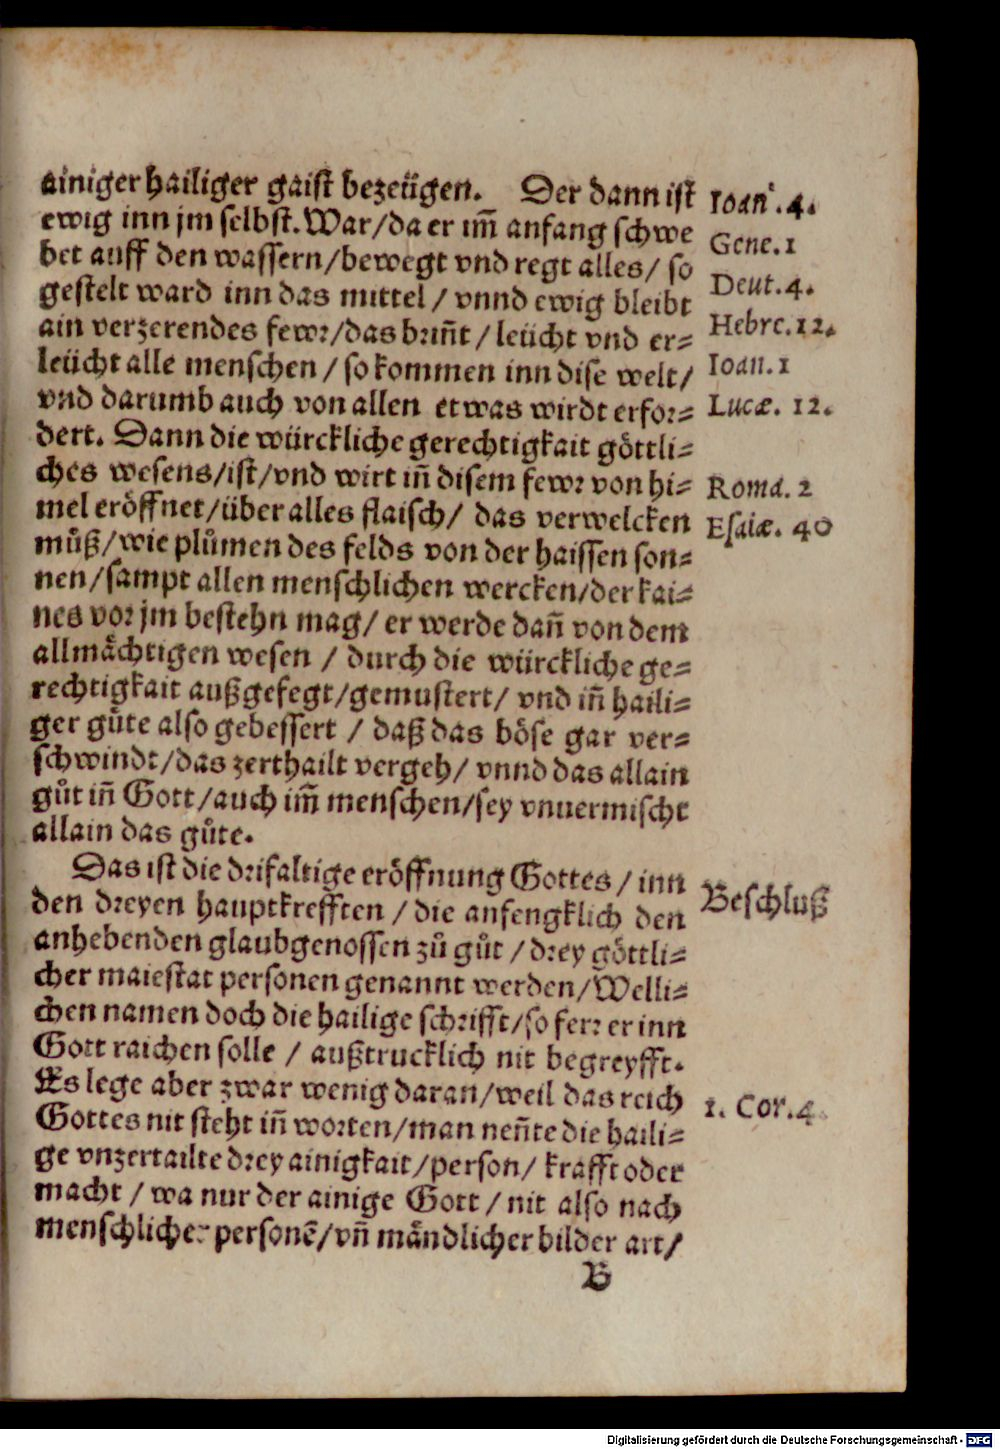 ainiger hailiger gaist bezeügen. Der dann ist
ewig inn jm selbst. War/da er im̃ anfang schwe
bet auff den wassern/bewegt vnd regt alles/ so
gestelt ward inn das mittel / vnnd ewig bleibt
ain verzerendes fewr/das brin̄t / leücht vnd er⸗
leücht alle menschen / so kommen inn dise welt/
vnd darumb auch von allen etwas wirdt erfor⸗
dert. Dann die würckliche gerechtigkait göttli⸗
ches wesens/ist/vnd wirt in̄ disem fewr von hi⸗
mel eröffnet/über alles flaisch/ das verwelcken
můß/wie plůmen des felds von der haissen son⸗
nen/sampt allen menschlichen wercken/der kai⸗
nes vor jm bestehn mag/ er werde dan̄ von dem
allmächtigen wesen / durch die würckliche ge⸗
rechtigkait außgefegt/gemustert/ vnd in̄ haili⸗
ger güte also gebessert / daß das böse gar ver⸗
schwindt/das zerthailt vergeh/ vnnd das allain
gůt in̄ Gott/auch im̃ menschen/sey vnuermischt
allain das gůte.
Das ist die drifaltige eröffnung Gottes / inn
den dreyen hauptkrefften / die anfengklich den
anhebenden glaubgenossen zů gůt / drey göttli⸗
cher maiestat personen genannt werden/Welli⸗
chen namen doch die hailige schrifft/so ferr er inn
Gott raichen solle / außtrucklich nit begreyfft.
Es lege aber zwar wenig daran/weil das reich
Gottes nit steht in̄ worten/man nen̄te die haili⸗
ge vnzertailte drey ainigkait/person/ krafft oder
macht / wa nur der ainige Gott / nit also nach
menschlicher personē/vn̄ mändlicher bilder art/
B
Ioan. 4.
Gene. 1
Deut. 4.
Hebre. 12.
Ioan. 1
Lucæ. 12.
Roma. 2
Esaiæ. 40
Beschluß
1. Cor. 4.
Digitalisierung gefördert durch die Deutsche Forschungsgemeinschaft - DFG